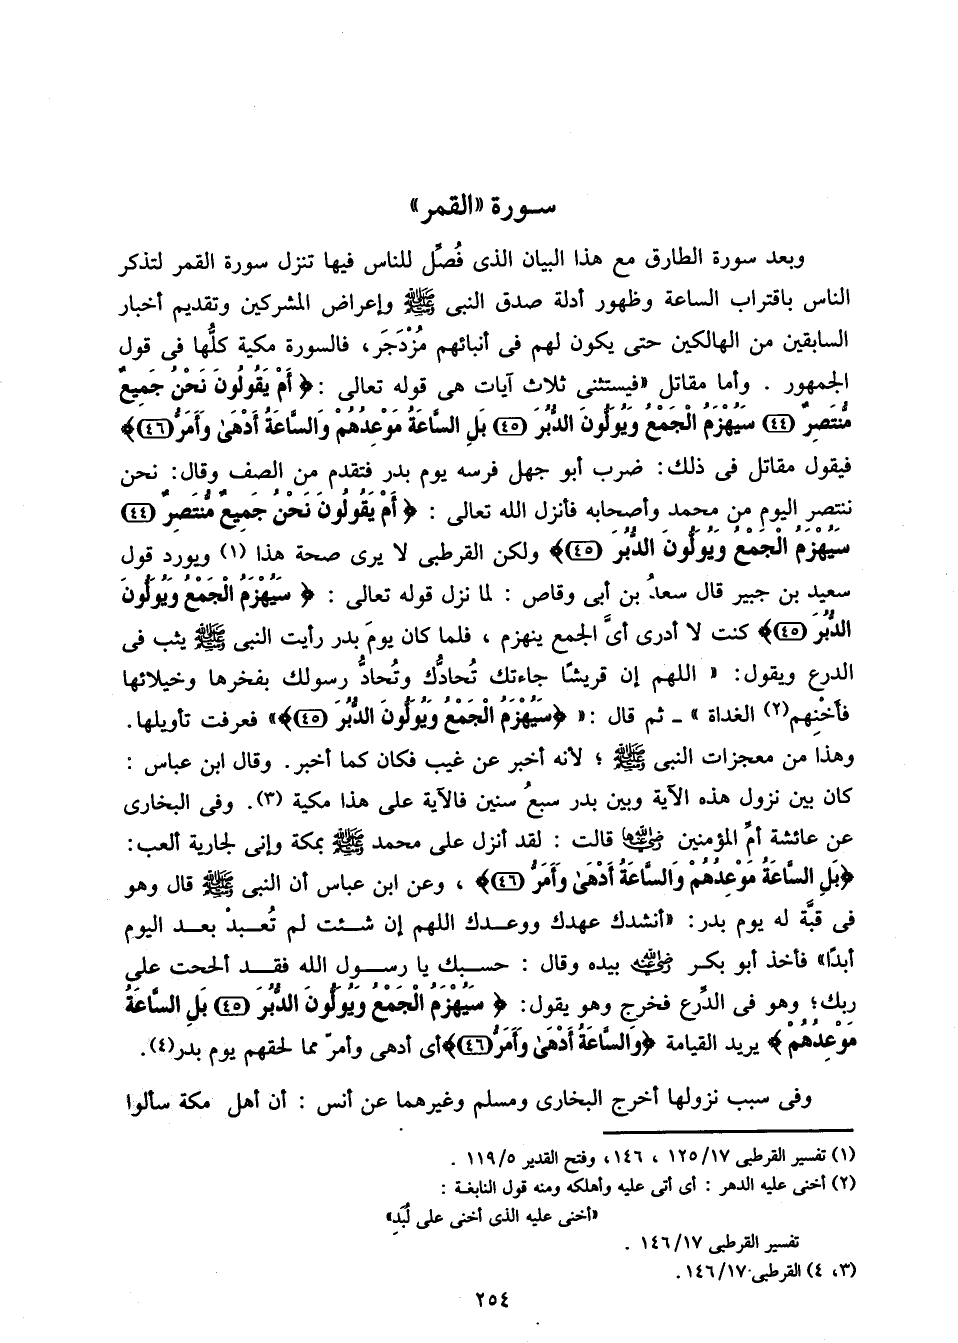 سـورة «القمر»
وبعد سورة الطارق مع هذا البيان الذى فُصِّل للناس فيها تنزل سورة القمر لتذكر
الناس باقتراب الساعة وظهور أدلة صدق النبى ﷺ وإعراض المشركين وتقديم أخبار
السابقين من الهالكين حتى يكون لهم فى أنبائهم مُزْدَجَر، فالسورة مكية كلُّها فى قول
الجمهور . وأما مقاتل «فيستثنى ثلاث آيات هى قوله تعالى : ﴿ أَمْ يَقُولُونَ نَحْنُ جَمِيعٌ
مُّنتَصِرٌ (٤٤) سَيُهْزَمُ الْجَمْعُ وَيُوَلُّونَ الدُّبُرَ (٤٥) بَلِ السَّاعَةُ مَوْعِدُهُمْ وَالسَّاعَةُ أَدْهَىٰ وَأَمَرُّ (٤٦)﴾
فيقول مقاتل فى ذلك: ضرب أبو جهل فرسه يوم بدر فتقدم من الصف وقال: نحن
ننتصر اليوم من محمد وأصحابه فأنزل الله تعالى : ﴿ أَمْ يَقُولُونَ نَحْنُ جَمِيعٌ مُّنتَصِرٌ (٤٤)
سَيُهْزَمُ الْجَمْعُ وَيُوَلُّونَ الدُّبُرَ (٤٥)﴾ ولكن القرطبى لا يرى صحة هذا (١) ويورد قول
سعيد بن جبير قال سعدُ بن أبى وقاص : لما نزل قوله تعالى : ﴿ سَيُهْزَمُ الْجَمْعُ وَيُوَلُّونَ
الدُّبُرَ (٤٥)﴾ كنت لا أدرى أىَّ الجمع ينهزم ، فلما كان يومَ بدر رأيت النبى ﷺ يثب فى
الدرع ويقول: « اللهم إن قريشًا جاءتك تُحادُّك وتُحادُّ رسولك بفخرها وخيلائها
فأخْنِهم(٢) الغداة » ـ ثم قال :« ﴿سَيُهْزَمُ الْجَمْعُ وَيُوَلُّونَ الدُّبُرَ (٤٥)﴾» فعرفت تأويلها.
وهذا من معجزات النبى ﷺ ؛ لأنه أخبر عن غيب فكان كما أخبر. وقال ابن عباس :
كان بين نزول هذه الآية وبين بدر سبعُ سنين فالآية على هذا مكية (٣). وفى البخارى
عن عائشة أمِّ المؤمنين رضي الله عنها قالت : لقد أنزل على محمد ﷺ بمكة وإنى لجارية ألعب:
﴿بَلِ السَّاعَةُ مَوْعِدُهُمْ وَالسَّاعَةُ أَدْهَىٰ وَأَمَرُّ (٤٦)﴾ ، وعن ابن عباس أن النبى ﷺ قال وهو
فى قبَّة له يوم بدر: «أنشدك عهدك ووعـدك اللهم إن شـئت لم تُعـبدْ بعـد اليوم
أبدًا» فأخذ أبو بكـر رضي الله عنه بيده وقال : حسـبك يا رسـول الله فقـد ألححت على
ربك؛ وهو فى الدِّرع فخرج وهو يقول: ﴿ سَيُهْزَمُ الْجَمْعُ وَيُوَلُّونَ الدُّبُرَ (٤٥) بَلِ السَّاعَةُ
مَوْعِدُهُمْ ﴾ يريد القيامة ﴿وَالسَّاعَةُ أَدْهَىٰ وَأَمَرُّ (٤٦)﴾أى أدهى وأمرّ مما لحقهم يوم بدر(٤).
وفى سبب نزولها أخرج البخارى ومسلم وغيرهما عن أنس : أن أهل مكة سألوا
(١) تفسير القرطبى ١٧/ ١٢٥ ، ١٤٦، وفتح القدير ٥/ ١١٩ .
(٢) أخنى عليه الدهر : أى أتى عليه وأهلكه ومنه قول النابغة :
«أخنى عليه الذى أخنى على لُبَدِ»
تفسير القرطبى ١٧/ ١٤٦ .
(٣، ٤) القرطبى ١٧/ ١٤٦.
٢٥٤